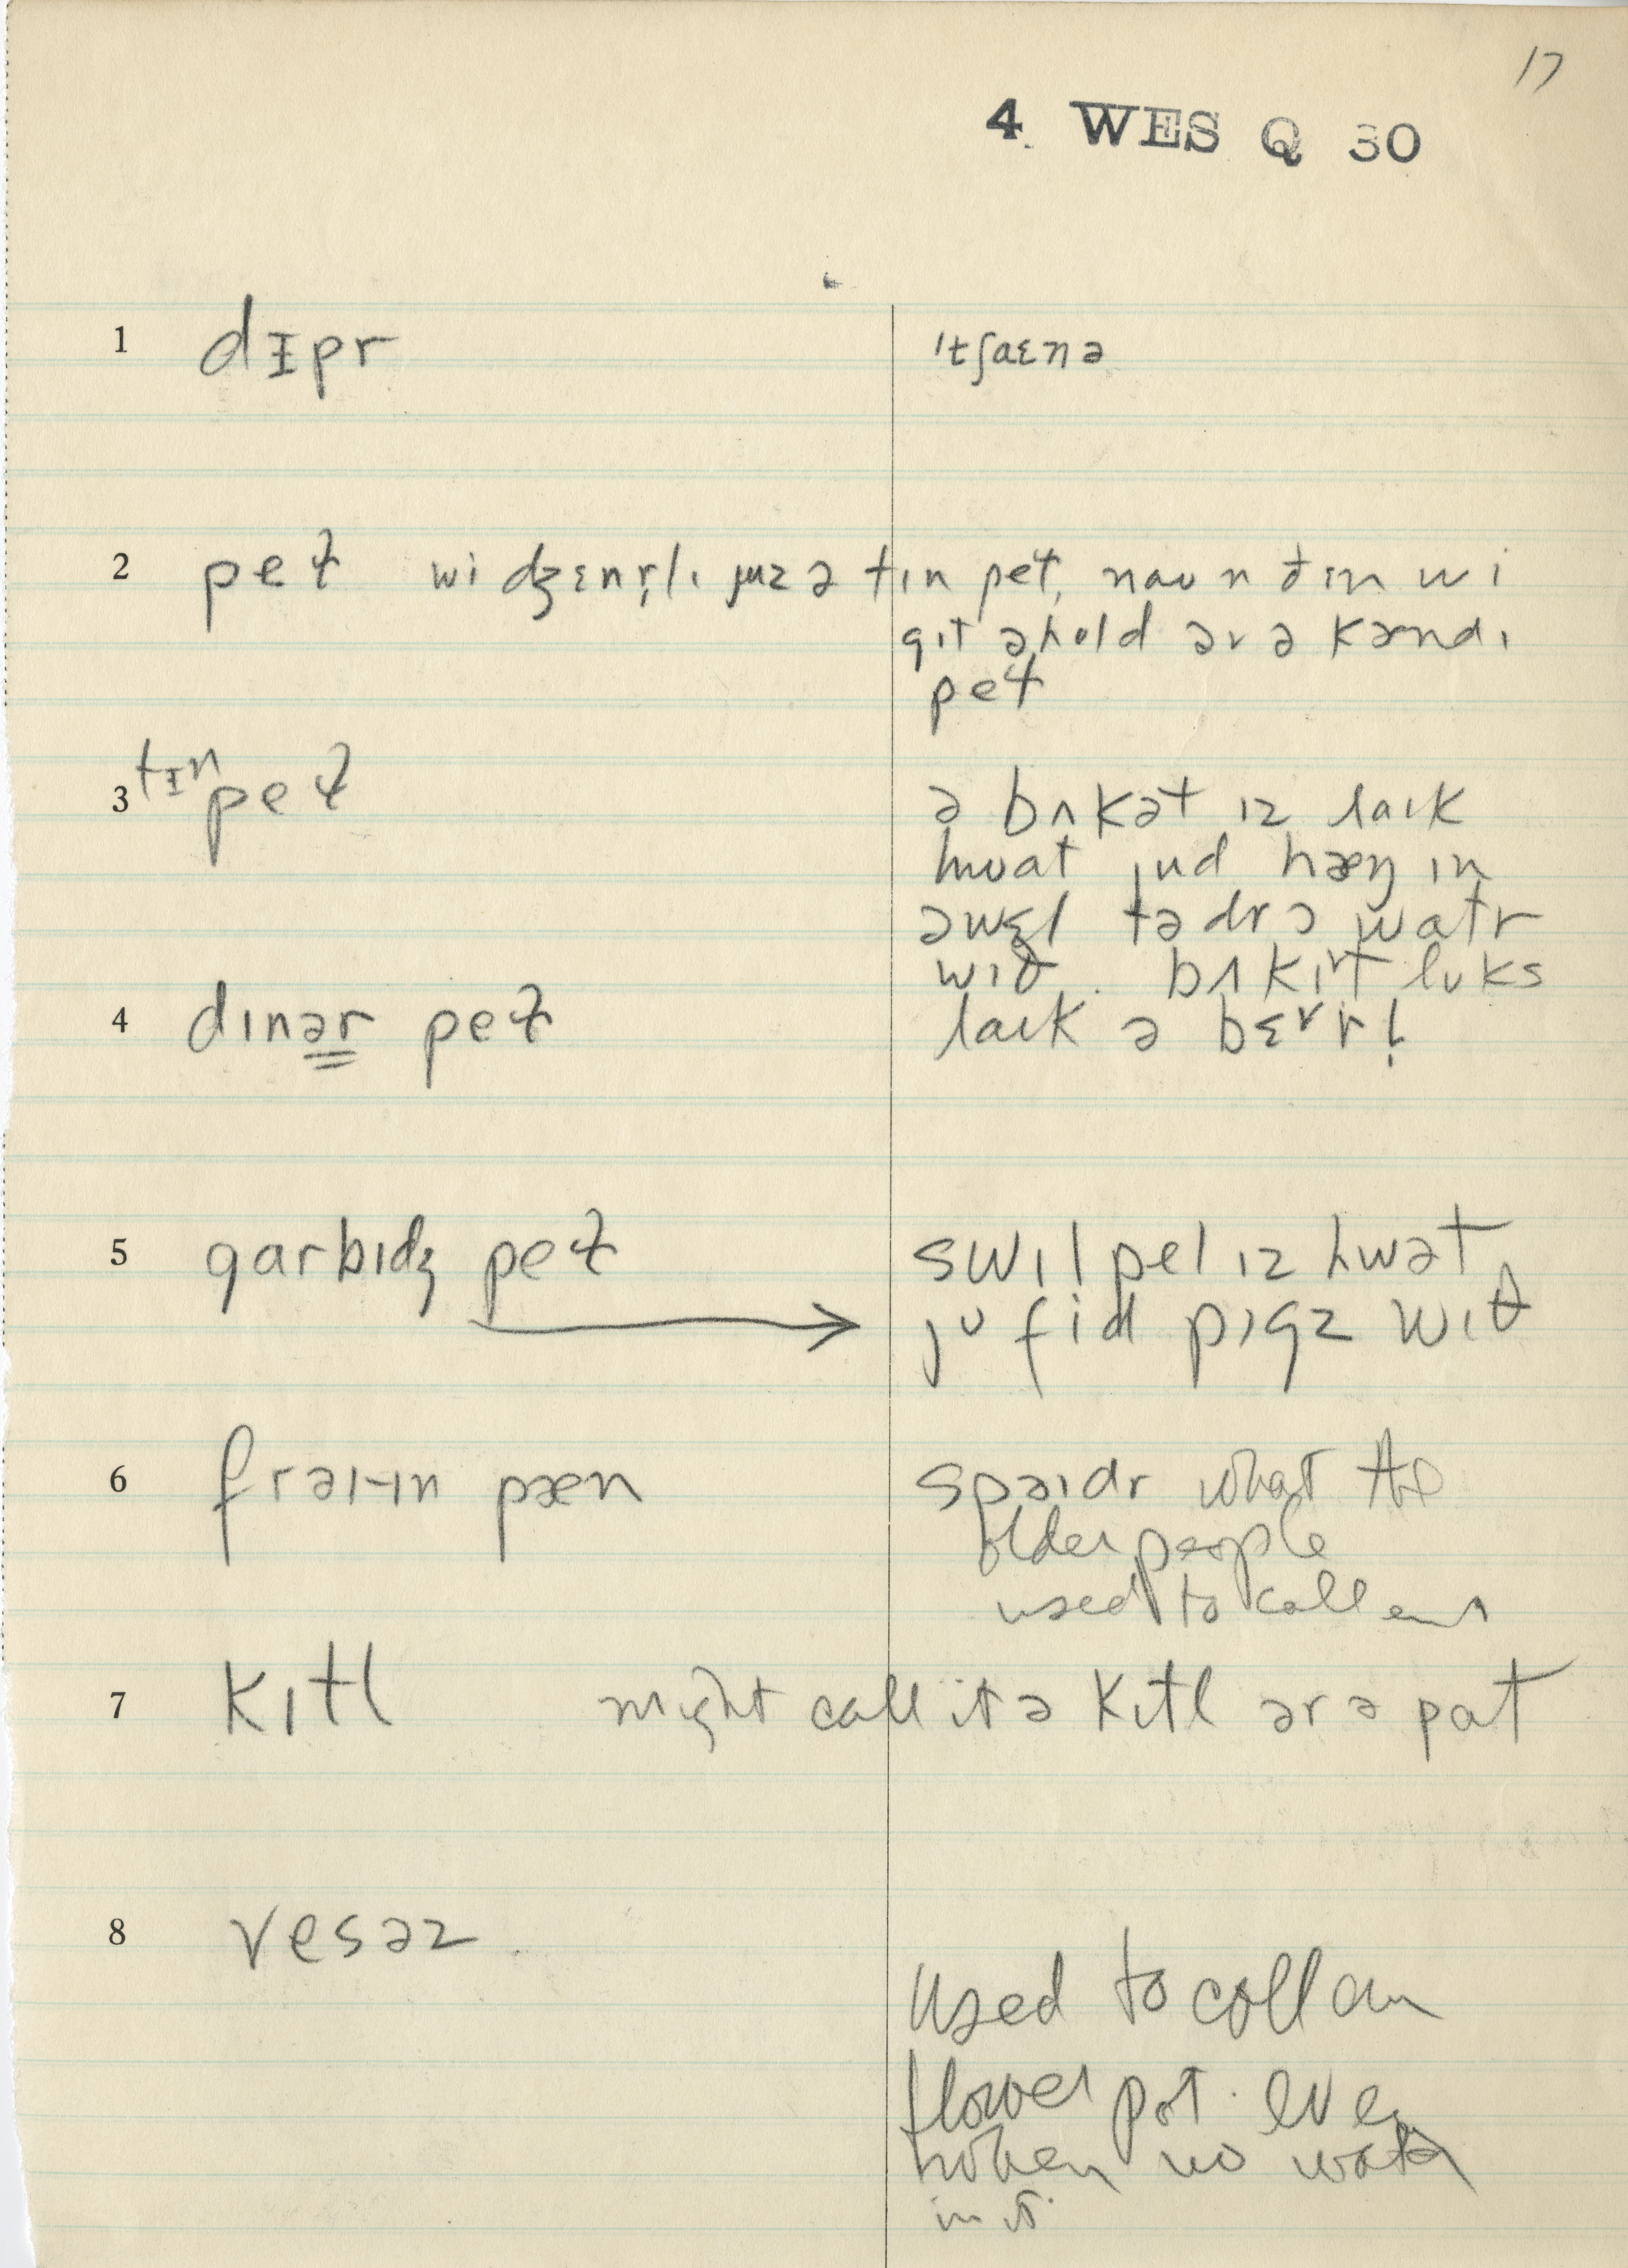 17
4 WES Q 30
1 dɪpr ˈtʃaɛnə
2 peɫ wi dʒɛnr̩lɪ juz ə tɪn peɫ, naʊ n ðɪn wi
gɪt ə hold əv ə kændɪ
peɫ
3 tɪn peɫ ə bʌkət ɪz laɪk
hwat jud hæŋ ɪn
ə wɛl tə drɔ watr
wɪð. bʌkɪt lʊks
4 dɪnər peɫ laɪk ə bɛrl̩
5 garbɪdʒ peɫ → swɪl pel ɪz hwət
jʊ fid pɪgz wɪθ
6 frəɪ-ɪn pæn spəɪdr what the
older people
used to call em
7 kɪtl might call it ə kɪtl ər ə pat
8 vesəz
used to call em
flower pot. even
when no water
in it.